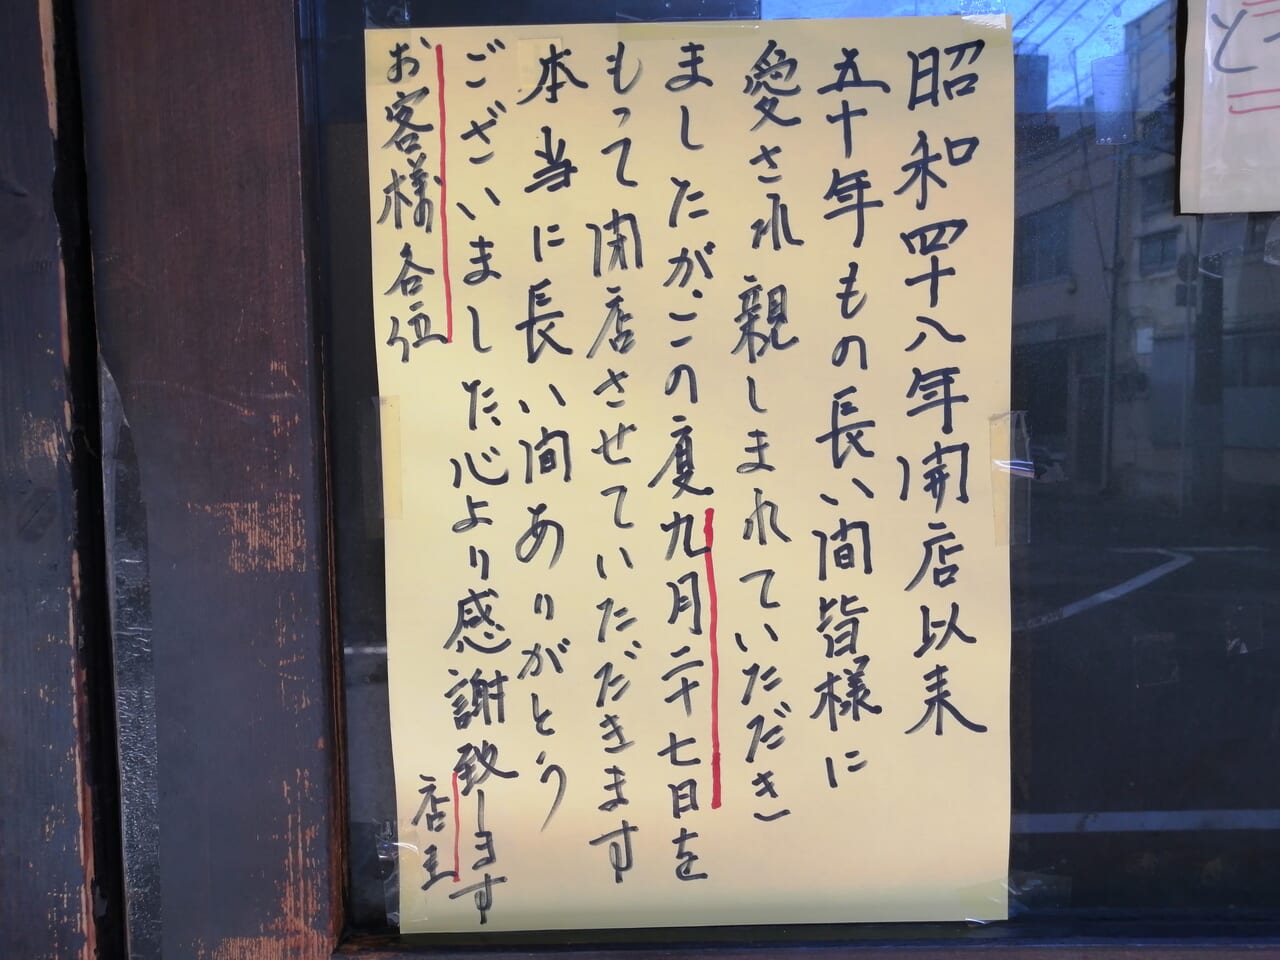 昭和四十八年開店以来
五十年もの長い間皆様に
愛され親しまれていただき
ましたがこの度九月二十七日を
もって閉店させていただきます
本当に長い間ありがとう
ございました心より感謝致します
お客様各位
店主
と